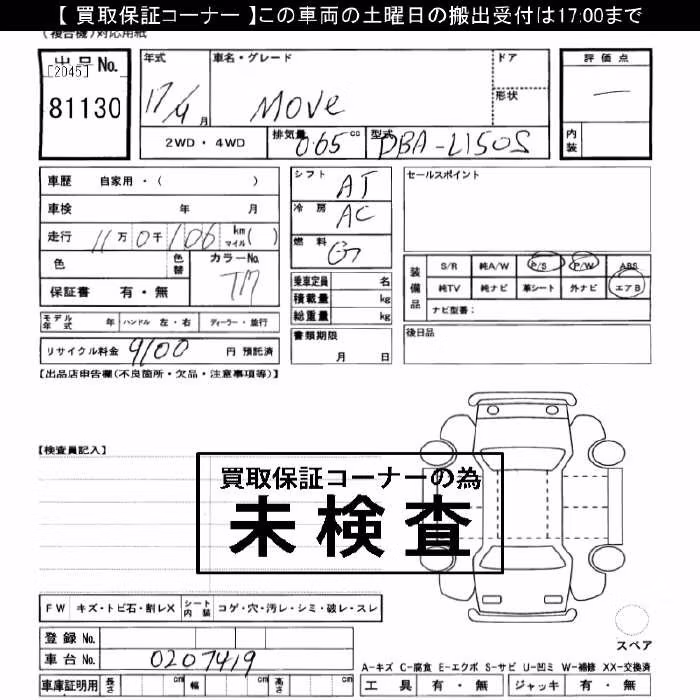 【 買取保証コーナー 】この車両の土曜日の搬出受付は17:00まで
(複合機)対応用紙
出品No.
[2045]
81130
年式
17/9月
車名・グレード
MOVe
ドア
形状
評価点
—
内装
2WD・4WD
排気量 065 cc
型式 DBA-L150S
車歴 自家用・( )
車検 年 月
走行 11万0千106 km マイル( )
色
色替
カラーNo. TM
保証書 有・無
シフト AT
冷房 AC
燃料 G
乗車定員 名
積載量 kg
総重量 kg
セールスポイント
装備品
S/R 純A/W P/S P/W ABS
純TV 純ナビ 革シート 外ナビ エアB
ナビ型番:
モデル年式 年 ハンドル 左・右 ディーラー・並行
リサイクル料金 9100 円 預託済
書類期限
月 日
後日品
【出品店申告欄(不良箇所・欠品・注意事項等)】
【検査員記入】
買取保証コーナーの為
未検査
FW キズ・トビ石・割レX シート内装 コゲ・穴・汚レ・シミ・破レ・スレ
登録No.
車台No. 0207419
車庫証明用 長さ cm 幅 cm 高さ cm
スペア
A-キズ C-腐食 E-エクボ S-サビ U-凹ミ W-補修 XX-交換済
工具 有・無 ジャッキ 有・無